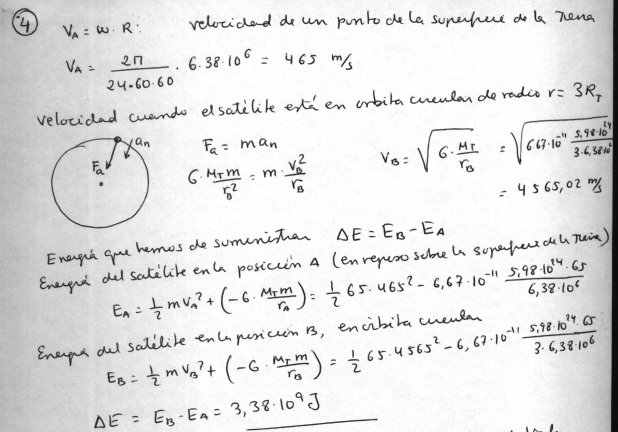 4
V_A = ω · R : velocidad de un punto de la superficie de la Tierra
V_A = 2π / 24·60·60 · 6.38·10^6 = 465 m/s
Velocidad cuando el satélite está en orbita circular de radio r = 3R_T
F_a a_n
F_a = m a_n
G · M_T m / r_B^2 = m · V_B^2 / r_B
V_B = √(G · M_T / r_B) = √(6'67·10^-11 5,98·10^24 / 3·6,38·10^6)
= 4565,02 m/s
Energía que hemos de suministrar ΔE = E_B - E_A
Energía del satélite en la posición A (en reposo sobre la superficie de la Tierra)
E_A = 1/2 m V_A^2 + (-G · M_T m / r_A) = 1/2 65·465^2 - 6,67·10^-11 5,98·10^24·65 / 6,38·10^6
Energía del satélite en la posición B, en órbita circular
E_B = 1/2 m V_B^2 + (-G · M_T m / r_B) = 1/2 65·4565^2 - 6,67·10^-11 5,98·10^24·65 / 3·6,38·10^6
ΔE = E_B - E_A = 3,38·10^9 J